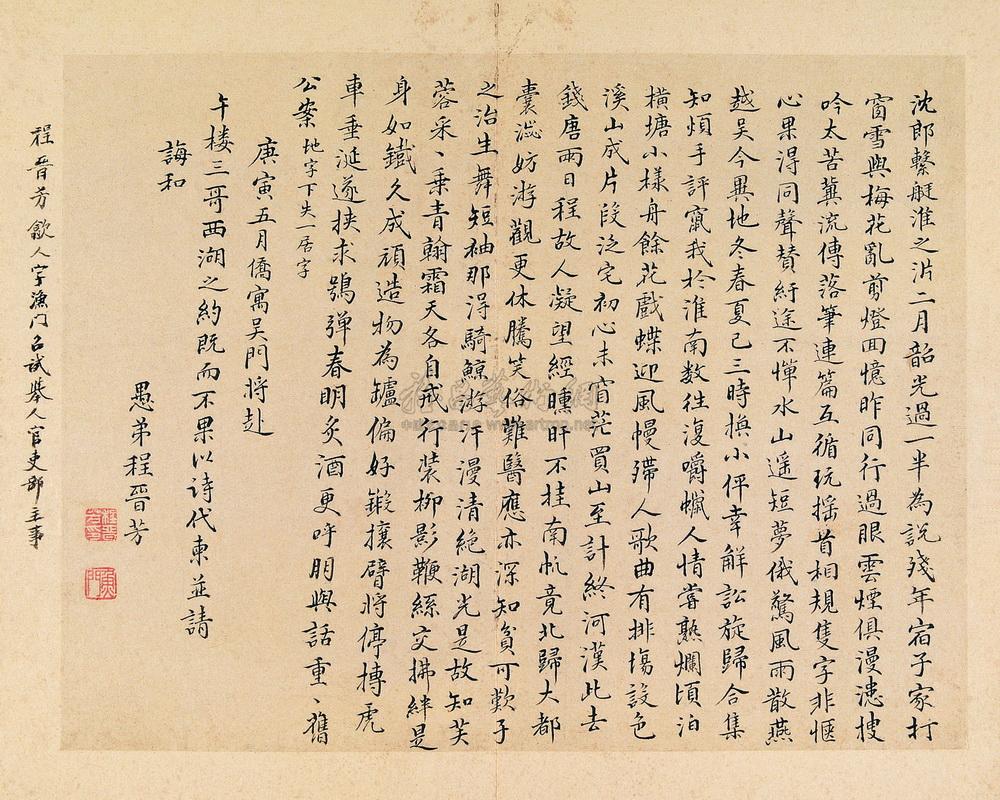 沈郎繫艇淮之沜二月韶光過一半為說殘年宿子家打
窗雪與梅花亂剪燈回憶昨同行過眼雲煙俱漫漶搜
吟太苦冀流傳落筆連篇互循玩搖首相規隻字非愜
心果得同聲贊紆途不憚水山遥短夢俄驚風雨散燕
越吳今異地冬春夏已三時換小伻幸解訟旋歸合集
知煩手評竄我於淮南数往復嚼蠟人情嘗熟爛頃泊
橫塘小樣舟餘花戲蝶迎風幔殢人歌曲有排塲設色
溪山成片段泛宅初心未窅茫買山至計終河漢此去
錢唐兩日程故人凝望經曛旰不挂南帆竟北歸大都
囊澁妨游觀更休騰笑俗難醫應亦深知貧可歎子
之治生舞短袖那得騎鯨游汗漫清絶湖光是故知芙
蓉采丶乗青翰霜天各自戒行装柳影鞭絲交拂絆是
身如鐵久成頑造物為鑪偏好鍛攘臂將停搏虎
車垂涎遂挾求鴞彈春明炙酒更呼朋與話重丶舊
公案 地字下失一居字
庚寅五月僑寓吳門將赴
午楼三哥西湖之約既而不果以诗代柬並請
誨和
愚弟程晉芳
程晉芳歙人字漁门召試舉人官吏部主事